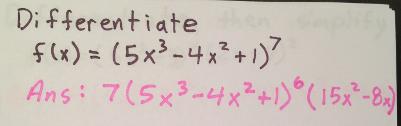 Differentiate
f(x) = (5x³-4x²+1)⁷
Ans: 7(5x³-4x²+1)⁶(15x²-8x)